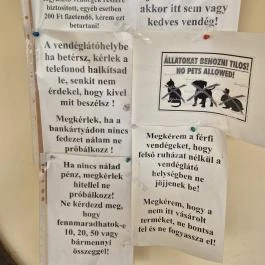 biztosított, egyéb esetben
200 Ft fizetendő, kérem ezt
betartani!
akkor itt sem vagy
kedves vendég!
A vendéglátóhelybe
ha betérsz, kérlek a
telefonod halkítsad
le, senkit nem
érdekel, hogy kivel
mit beszélsz !
Megkérlek, ha a
bankártyádon nincs
fedezet nálam ne
próbálkozz !
ÁLLATOKAT BEHOZNI TILOS!
NO PETS ALLOWED!
Ha nincs nálad
pénz, megkérlek
hitellel ne
próbálkozz!
Ne kérdezd meg,
hogy
fennmaradhatok-e
10, 20, 50 vagy
bármennyi
összeggel!
Megkérem a férfi
vendégeket, hogy
felső ruházat nélkül a
vendéglátó
helységben ne
jöjjenek be!
Megkérem, hogy a
nem itt vásárolt
terméket, ne bontsa
fel és ne fogyassza el!